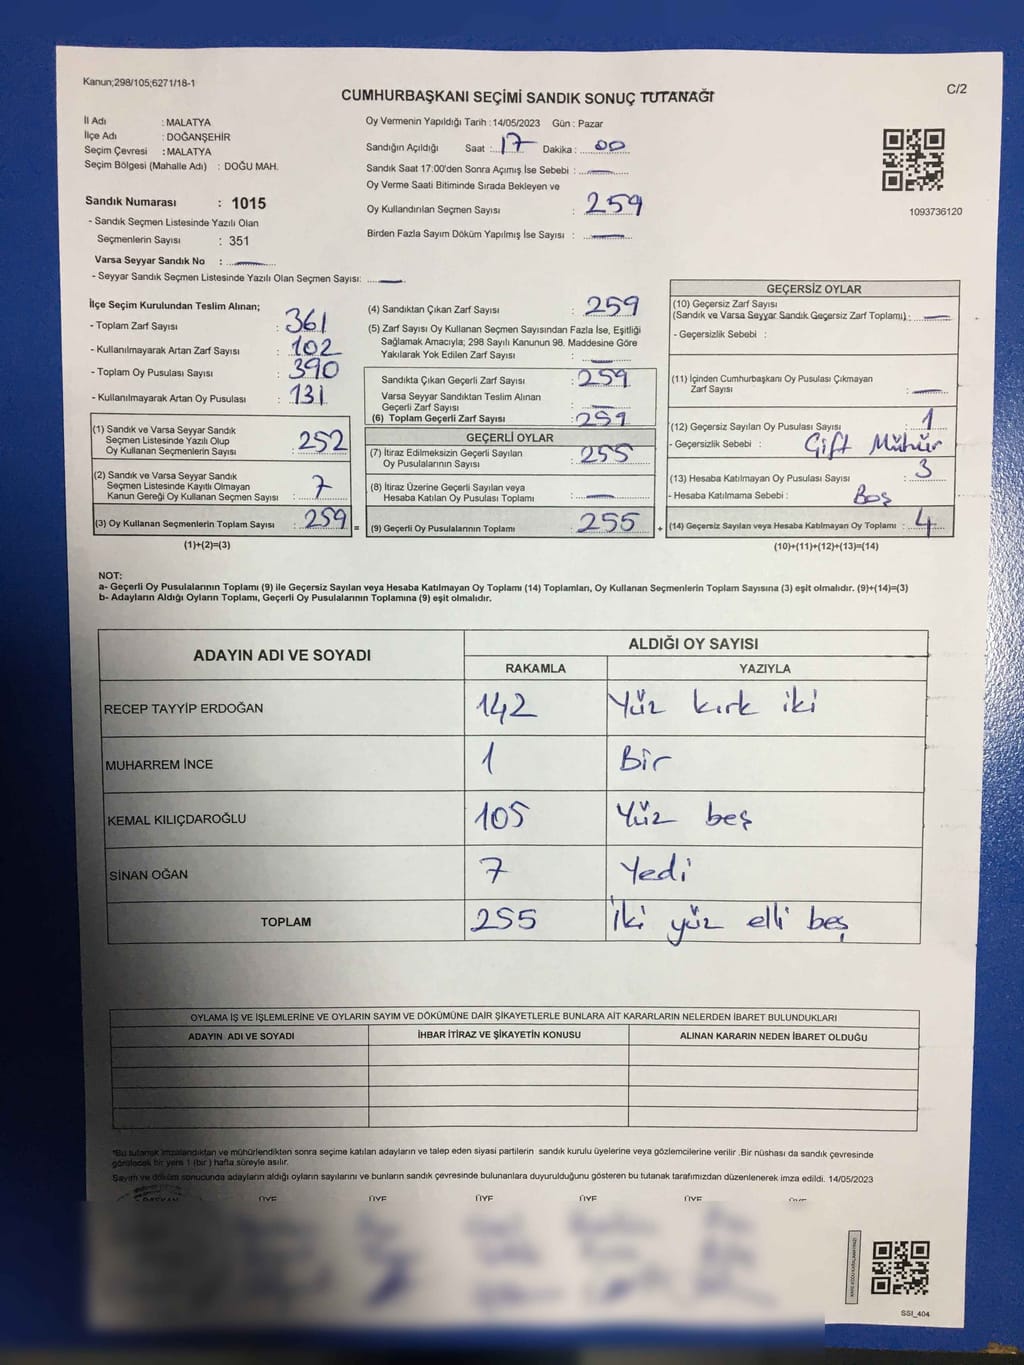 Kanun;298/105;6271/18-1
C/2
CUMHURBAŞKANI SEÇİMİ SANDIK SONUÇ TUTANAĞI
İl Adı : MALATYA
İlçe Adı : DOĞANŞEHİR
Seçim Çevresi : MALATYA
Seçim Bölgesi (Mahalle Adı) : DOĞU MAH.
Sandık Numarası : 1015
- Sandık Seçmen Listesinde Yazılı Olan
Seçmenlerin Sayısı : 351
Varsa Seyyar Sandık No :
- Seyyar Sandık Seçmen Listesinde Yazılı Olan Seçmen Sayısı:
Oy Vermenin Yapıldığı Tarih : 14/05/2023 Gün : Pazar
Sandığın Açıldığı Saat : 17 Dakika : 00
Sandık Saat 17:00'den Sonra Açımış İse Sebebi :
Oy Verme Saati Bitiminde Sırada Bekleyen ve
Oy Kullandırılan Seçmen Sayısı : 259
Birden Fazla Sayım Döküm Yapılmış İse Sayısı :
1093736120
İlçe Seçim Kurulundan Teslim Alınan;
- Toplam Zarf Sayısı : 361
- Kullanılmayarak Artan Zarf Sayısı : 102
- Toplam Oy Pusulası Sayısı : 390
- Kullanılmayarak Artan Oy Pusulası : 131
(1) Sandık ve Varsa Seyyar Sandık
Seçmen Listesinde Yazılı Olup
Oy Kullanan Seçmenlerin Sayısı : 252
(2) Sandık ve Varsa Seyyar Sandık
Seçmen Listesinde Kayıtlı Olmayan
Kanun Gereği Oy Kullanan Seçmen Sayısı : 7
(3) Oy Kullanan Seçmenlerin Toplam Sayısı : 259 =
(1)+(2)=(3)
(4) Sandıktan Çıkan Zarf Sayısı : 259
(5) Zarf Sayısı Oy Kullanan Seçmen Sayısından Fazla İse, Eşitliği
Sağlamak Amacıyla; 298 Sayılı Kanunun 98. Maddesine Göre
Yakılarak Yok Edilen Zarf Sayısı :
Sandıkta Çıkan Geçerli Zarf Sayısı : 259
Varsa Seyyar Sandıktan Teslim Alınan
Geçerli Zarf Sayısı :
(6) Toplam Geçerli Zarf Sayısı : 259
GEÇERLİ OYLAR
(7) İtiraz Edilmeksizin Geçerli Sayılan
Oy Pusulalarının Sayısı : 255
(8) İtiraz Üzerine Geçerli Sayılan veya
Hesaba Katılan Oy Pusulası Toplamı :
(9) Geçerli Oy Pusulalarının Toplamı : 255 +
GEÇERSİZ OYLAR
(10) Geçersiz Zarf Sayısı
(Sandık ve Varsa Seyyar Sandık Geçersiz Zarf Toplamı) :
- Geçersizlik Sebebi :
(11) İçinden Cumhurbaşkanı Oy Pusulası Çıkmayan
Zarf Sayısı :
(12) Geçersiz Sayılan Oy Pusulası Sayısı : 1
- Geçersizlik Sebebi : Çift Mühür
(13) Hesaba Katılmayan Oy Pusulası Sayısı : 3
- Hesaba Katılmama Sebebi : Boş
(14) Geçersiz Sayılan veya Hesaba Katılmayan Oy Toplamı : 4
(10)+(11)+(12)+(13)=(14)
NOT:
a- Geçerli Oy Pusulalarının Toplamı (9) ile Geçersiz Sayılan veya Hesaba Katılmayan Oy Toplamı (14) Toplamları, Oy Kullanan Seçmenlerin Toplam Sayısına (3) eşit olmalıdır. (9)+(14)=(3)
b- Adayların Aldığı Oyların Toplamı, Geçerli Oy Pusulalarının Toplamına (9) eşit olmalıdır.
ADAYIN ADI VE SOYADI ALDIĞI OY SAYISI
RAKAMLA YAZIYLA
RECEP TAYYİP ERDOĞAN 142 Yüz kırk iki
MUHARREM İNCE 1 Bir
KEMAL KILIÇDAROĞLU 105 Yüz beş
SİNAN OĞAN 7 Yedi
TOPLAM 255 İki yüz elli beş
OYLAMA İŞ VE İŞLEMLERİNE VE OYLARIN SAYIM VE DÖKÜMÜNE DAİR ŞİKAYETLERLE BUNLARA AİT KARARLARIN NELERDEN İBARET BULUNDUKLARI
ADAYIN ADI VE SOYADI İHBAR İTİRAZ VE ŞİKAYETİN KONUSU ALINAN KARARIN NEDEN İBARET OLDUĞU
*Bu tutanak imzalandıktan ve mühürlendikten sonra seçime katılan adayların ve talep eden siyasi partilerin sandık kurulu üyelerine veya gözlemcilerine verilir .Bir nüshası da sandık çevresinde
görülecek bir yere 1 (bir ) hafta süreyle asılır.
Sayım ve döküm sonucunda adayların aldığı oyların sayılarını ve bunların sandık çevresinde bulunanlara duyurulduğunu gösteren bu tutanak tarafımızdan düzenlenerek imza edildi. 14/05/2023
BAŞKAN ÜYE ÜYE ÜYE ÜYE ÜYE ÜYE
SSI_404